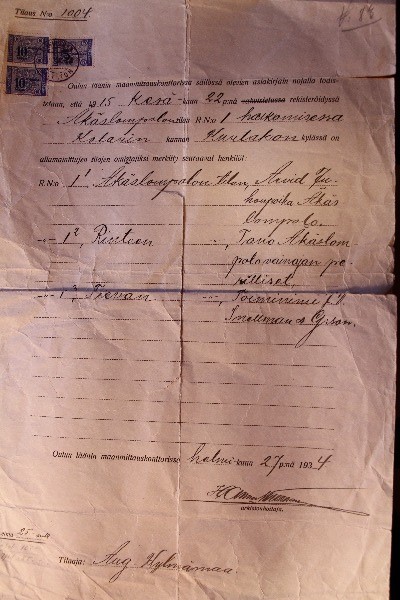 Tilaus N:o 1004.
10 10
Oulun läänin maanmittauskonttorissa säilössä olevien asiakirjain nojalla todis-
tetaan, että 1915 Kesä-kuun 22 p:nä rekisteröidyssä
Äkäslompolon tilan R.N:o 1 halkomisessa
Kolarin kunnan kylässä on
allamainittujen tilojen omistajiksi merkitty seuraavat henkilöt:
R.N:o 1¹ Äkäslompolon tilan, Arvid Ju-
honpoika Äkäs
lompolo.
-"- 1², Rinteen -"-, Äkäslom-
polo vainajan pe-
rilliset,
-"- 1³, -"-, Toiminimi
&
Oulun läänin maanmittauskonttorissa helmi-kuun 27 p:nä 1934
arkistonhoitaja.
25
Tilaaja: Aug. Kylmämaa.